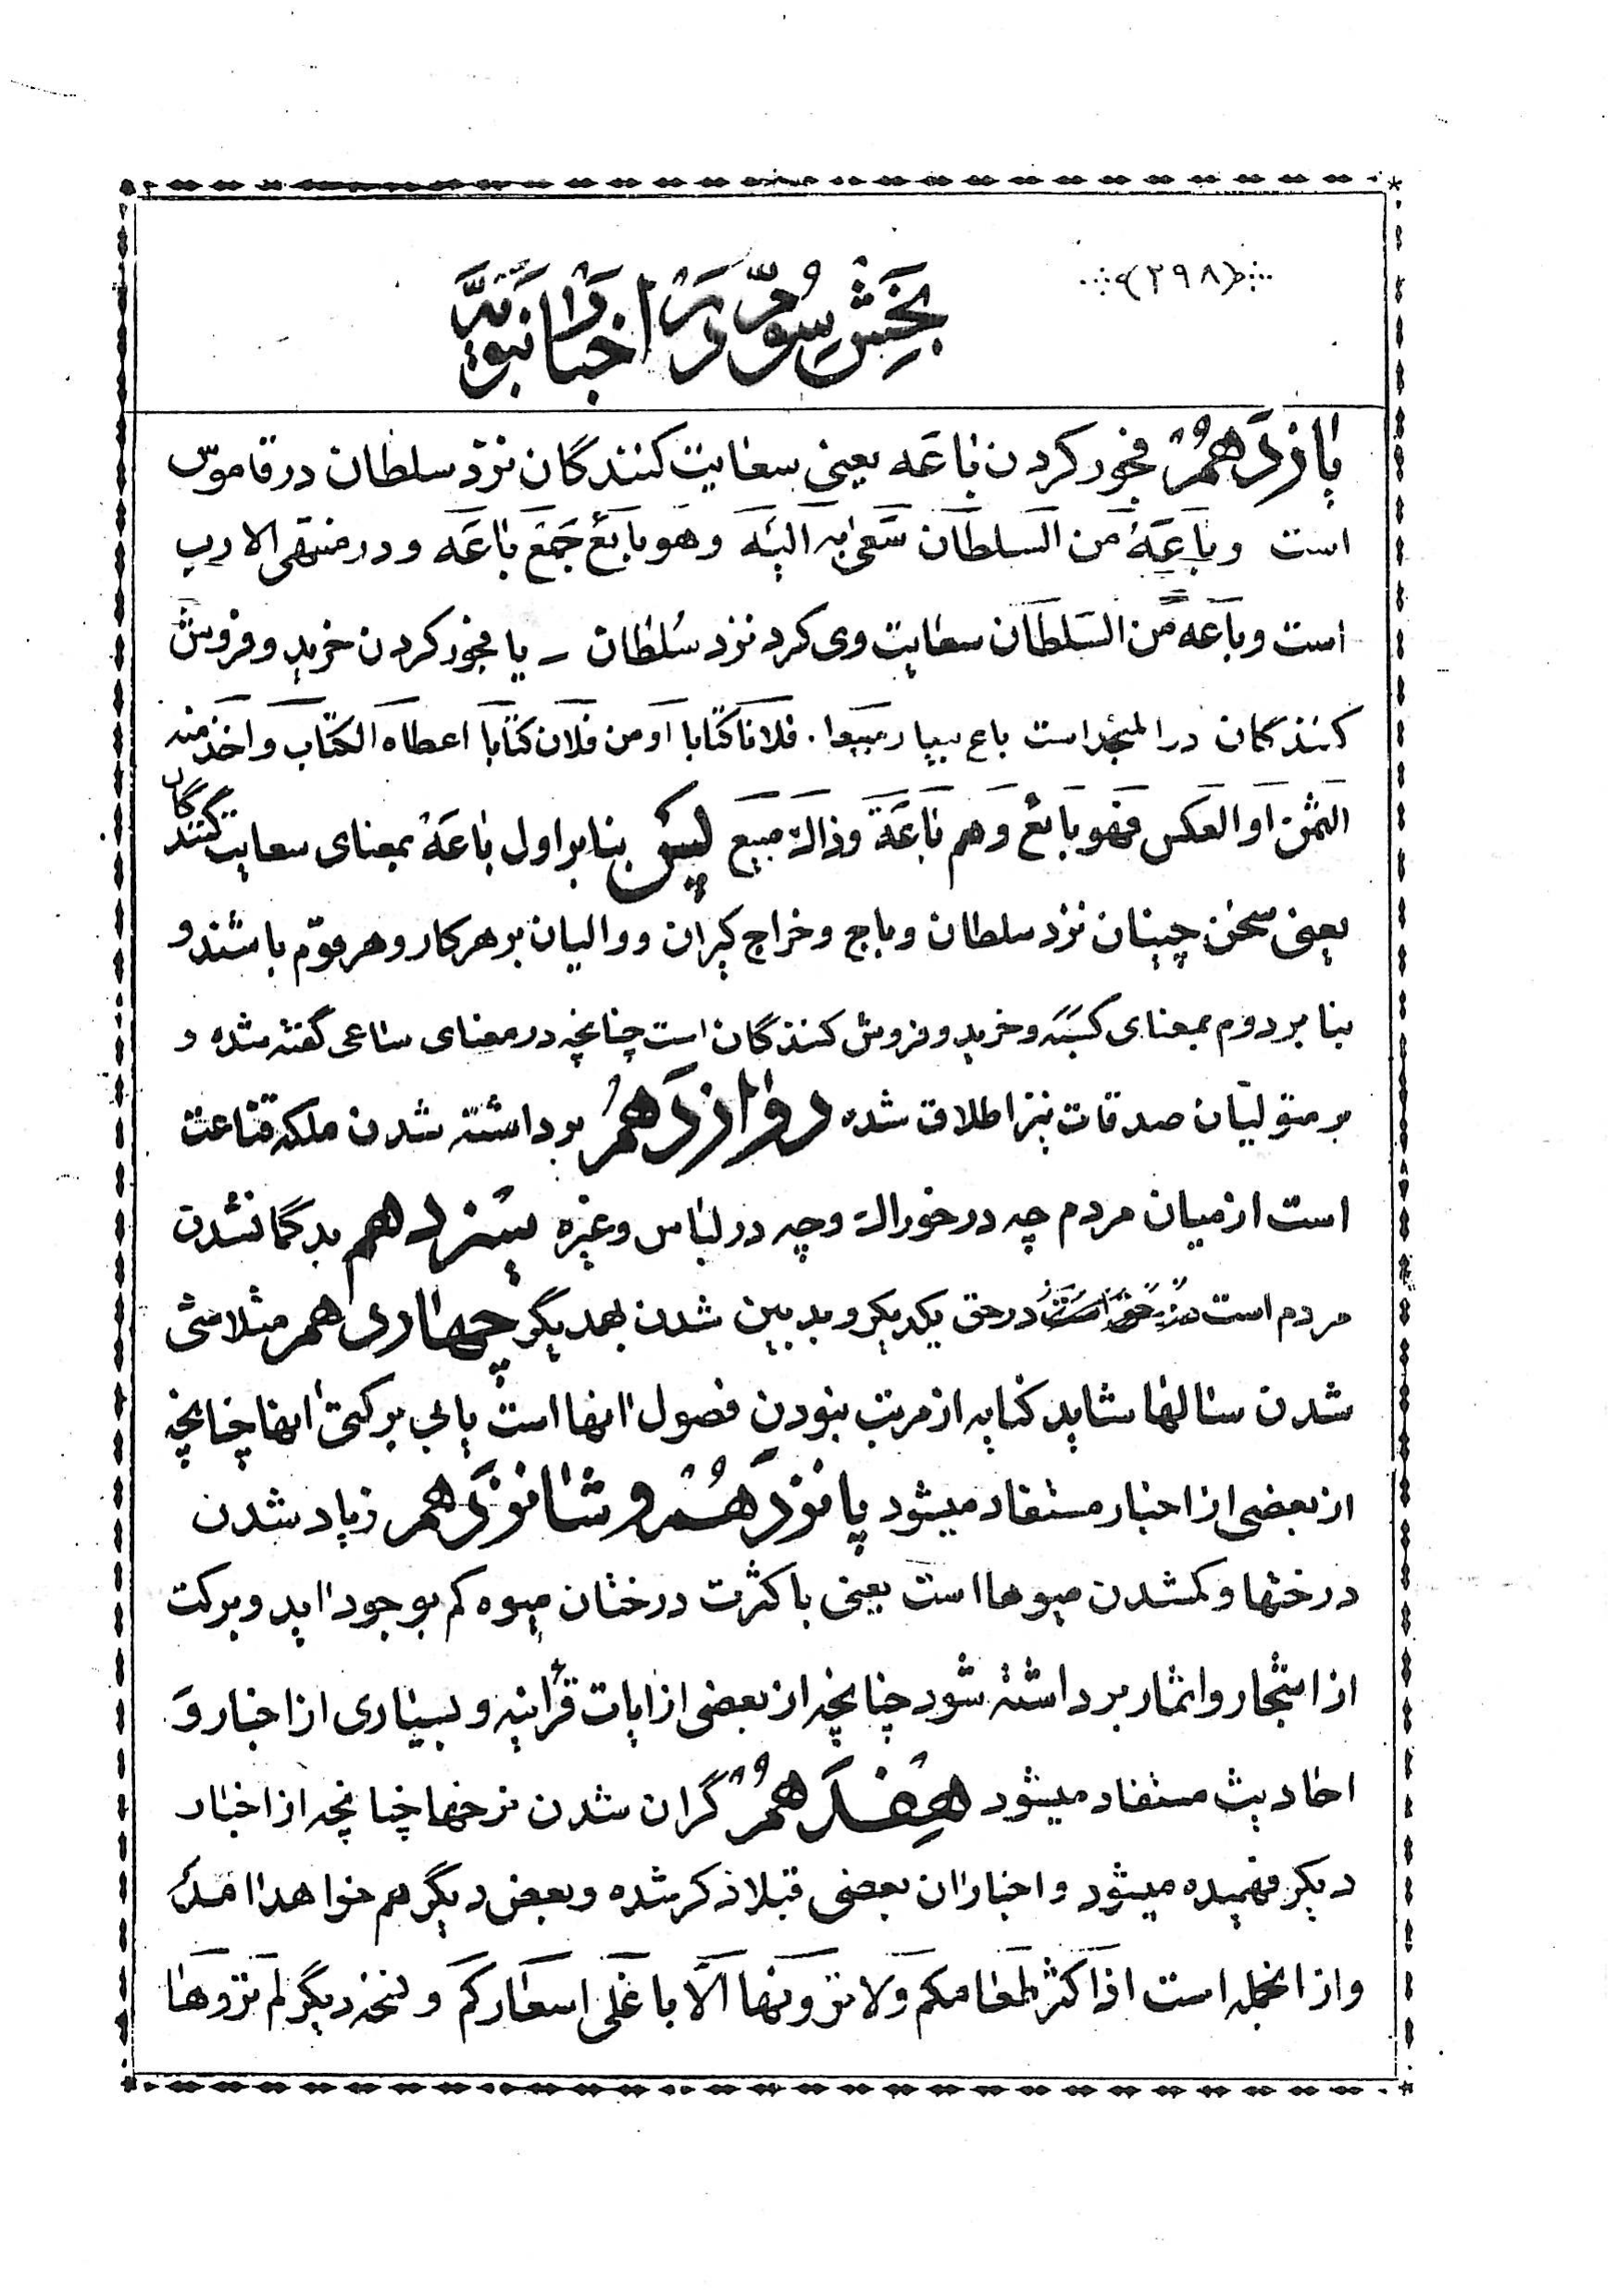 (۲۹۸)
بخش سوّم در اخبار نبویّه
یازدهم فجور کردن باعه یعنی سعایت کنندگان نزد سلطان در قاموس
است وباعَهُ من السلطان سَعٰی به الیه وهو بایع جمع باعه و در منتهی الارب
است وباعه من السلطان سعایت وی کرد نزد سلطان - یا فجور کردن خرید و فروش
کنندگان در المنجد است باع یبیع مبیعا. فلانا کتابا او من فلان کتابا اعطاه الکتاب واخذ منه
الثمن او العکس فهو بایع وهم باعة وذاك مبیع پس بنابر اول باعه بمعنای سعایت کنندگان
یعنی سخن چینان نزد سلطان و باج و خراج گیران و والیان بر هر کار و هر قوم باشند و
بنابر دوم بمعنای کسبه و خرید و فروش کنندگان است چنانچه در معنای ساعی گفته شده و
بر متولیان صدقات نیز اطلاق شده دوازدهم برداشته شدن ملکه قناعت
است از میان مردم چه در خوراك وچه در لباس و غیره سیزدهم بدگمانشدن
مردم است در حق یکدیگر و بدبین شدن بهمدیگر چهاردهم متلاشی
شدن سالها شاید کنایه از مرتب نبودن فصول انها است یا بی برکتی انها چنانچه
از بعضی از اخبار مستفاد میشود پانزدهم و شانزدهم زیاد شدن
درختها و کمشدن میوه ها است یعنی با کثرت درختان میوه کم بوجود اید و برکت
از اشجار و اثمار برداشته شود چنانچه از بعضی از ایات قرانیه و بسیاری از اخبار و
احادیث مستفاد میشود هفدهم گران شدن نرخها چنانچه از اخبار
دیگر فهمیده میشود و اخبار ان بعضی قبلا ذکر شده و بعض دیگر هم خواهد امد
و از انجمله است اذا کثر طعامکم ولا ترونها الّا باغلی اسعارکم و نسخه دیگر لم تروها